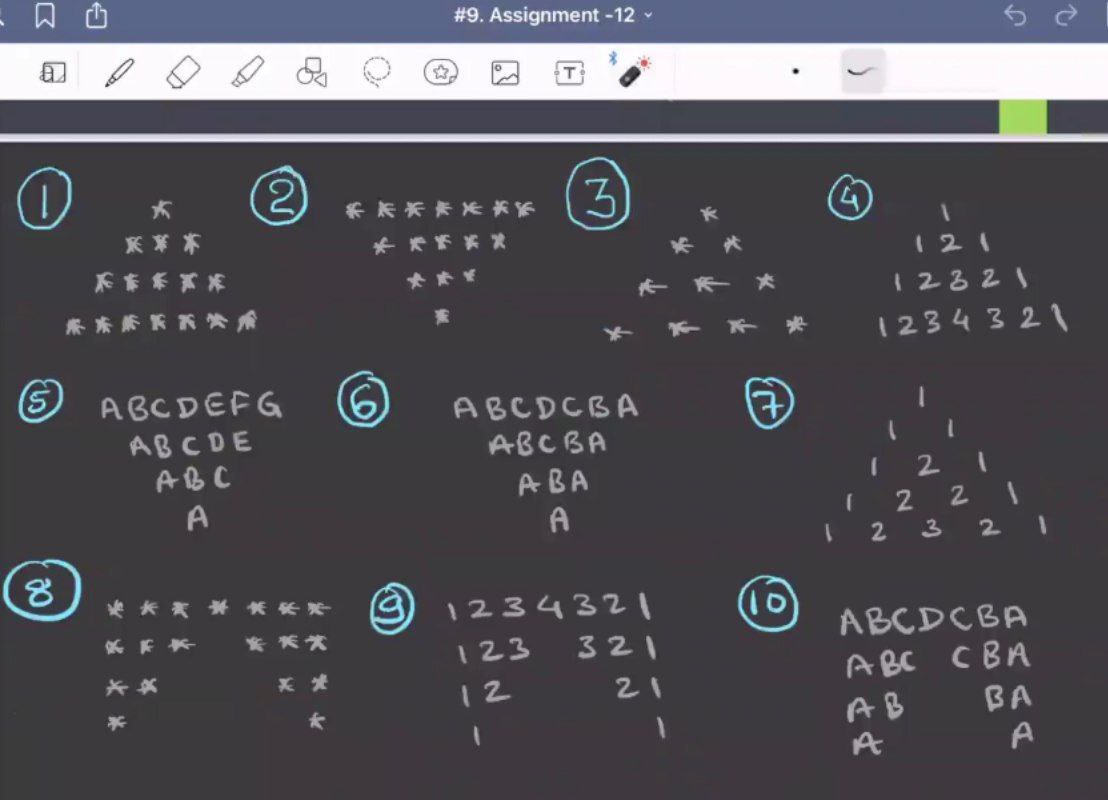 #9. Assignment -12
1
*
* * *
* * * * *
* * * * * * *
2
* * * * * * *
* * * * *
* * *
*
3
*
* *
* * *
* * * *
4
1
1 2 1
1 2 3 2 1
1 2 3 4 3 2 1
5
A B C D E F G
A B C D E
A B C
A
6
A B C D C B A
A B C B A
A B A
A
7
1
1 1
1 2 1
1 2 2 1
1 2 3 2 1
8
* * * * * * *
* * * * * *
* * * *
* *
9
1 2 3 4 3 2 1
1 2 3 3 2 1
1 2 2 1
1 1
10
A B C D C B A
A B C C B A
A B B A
A A